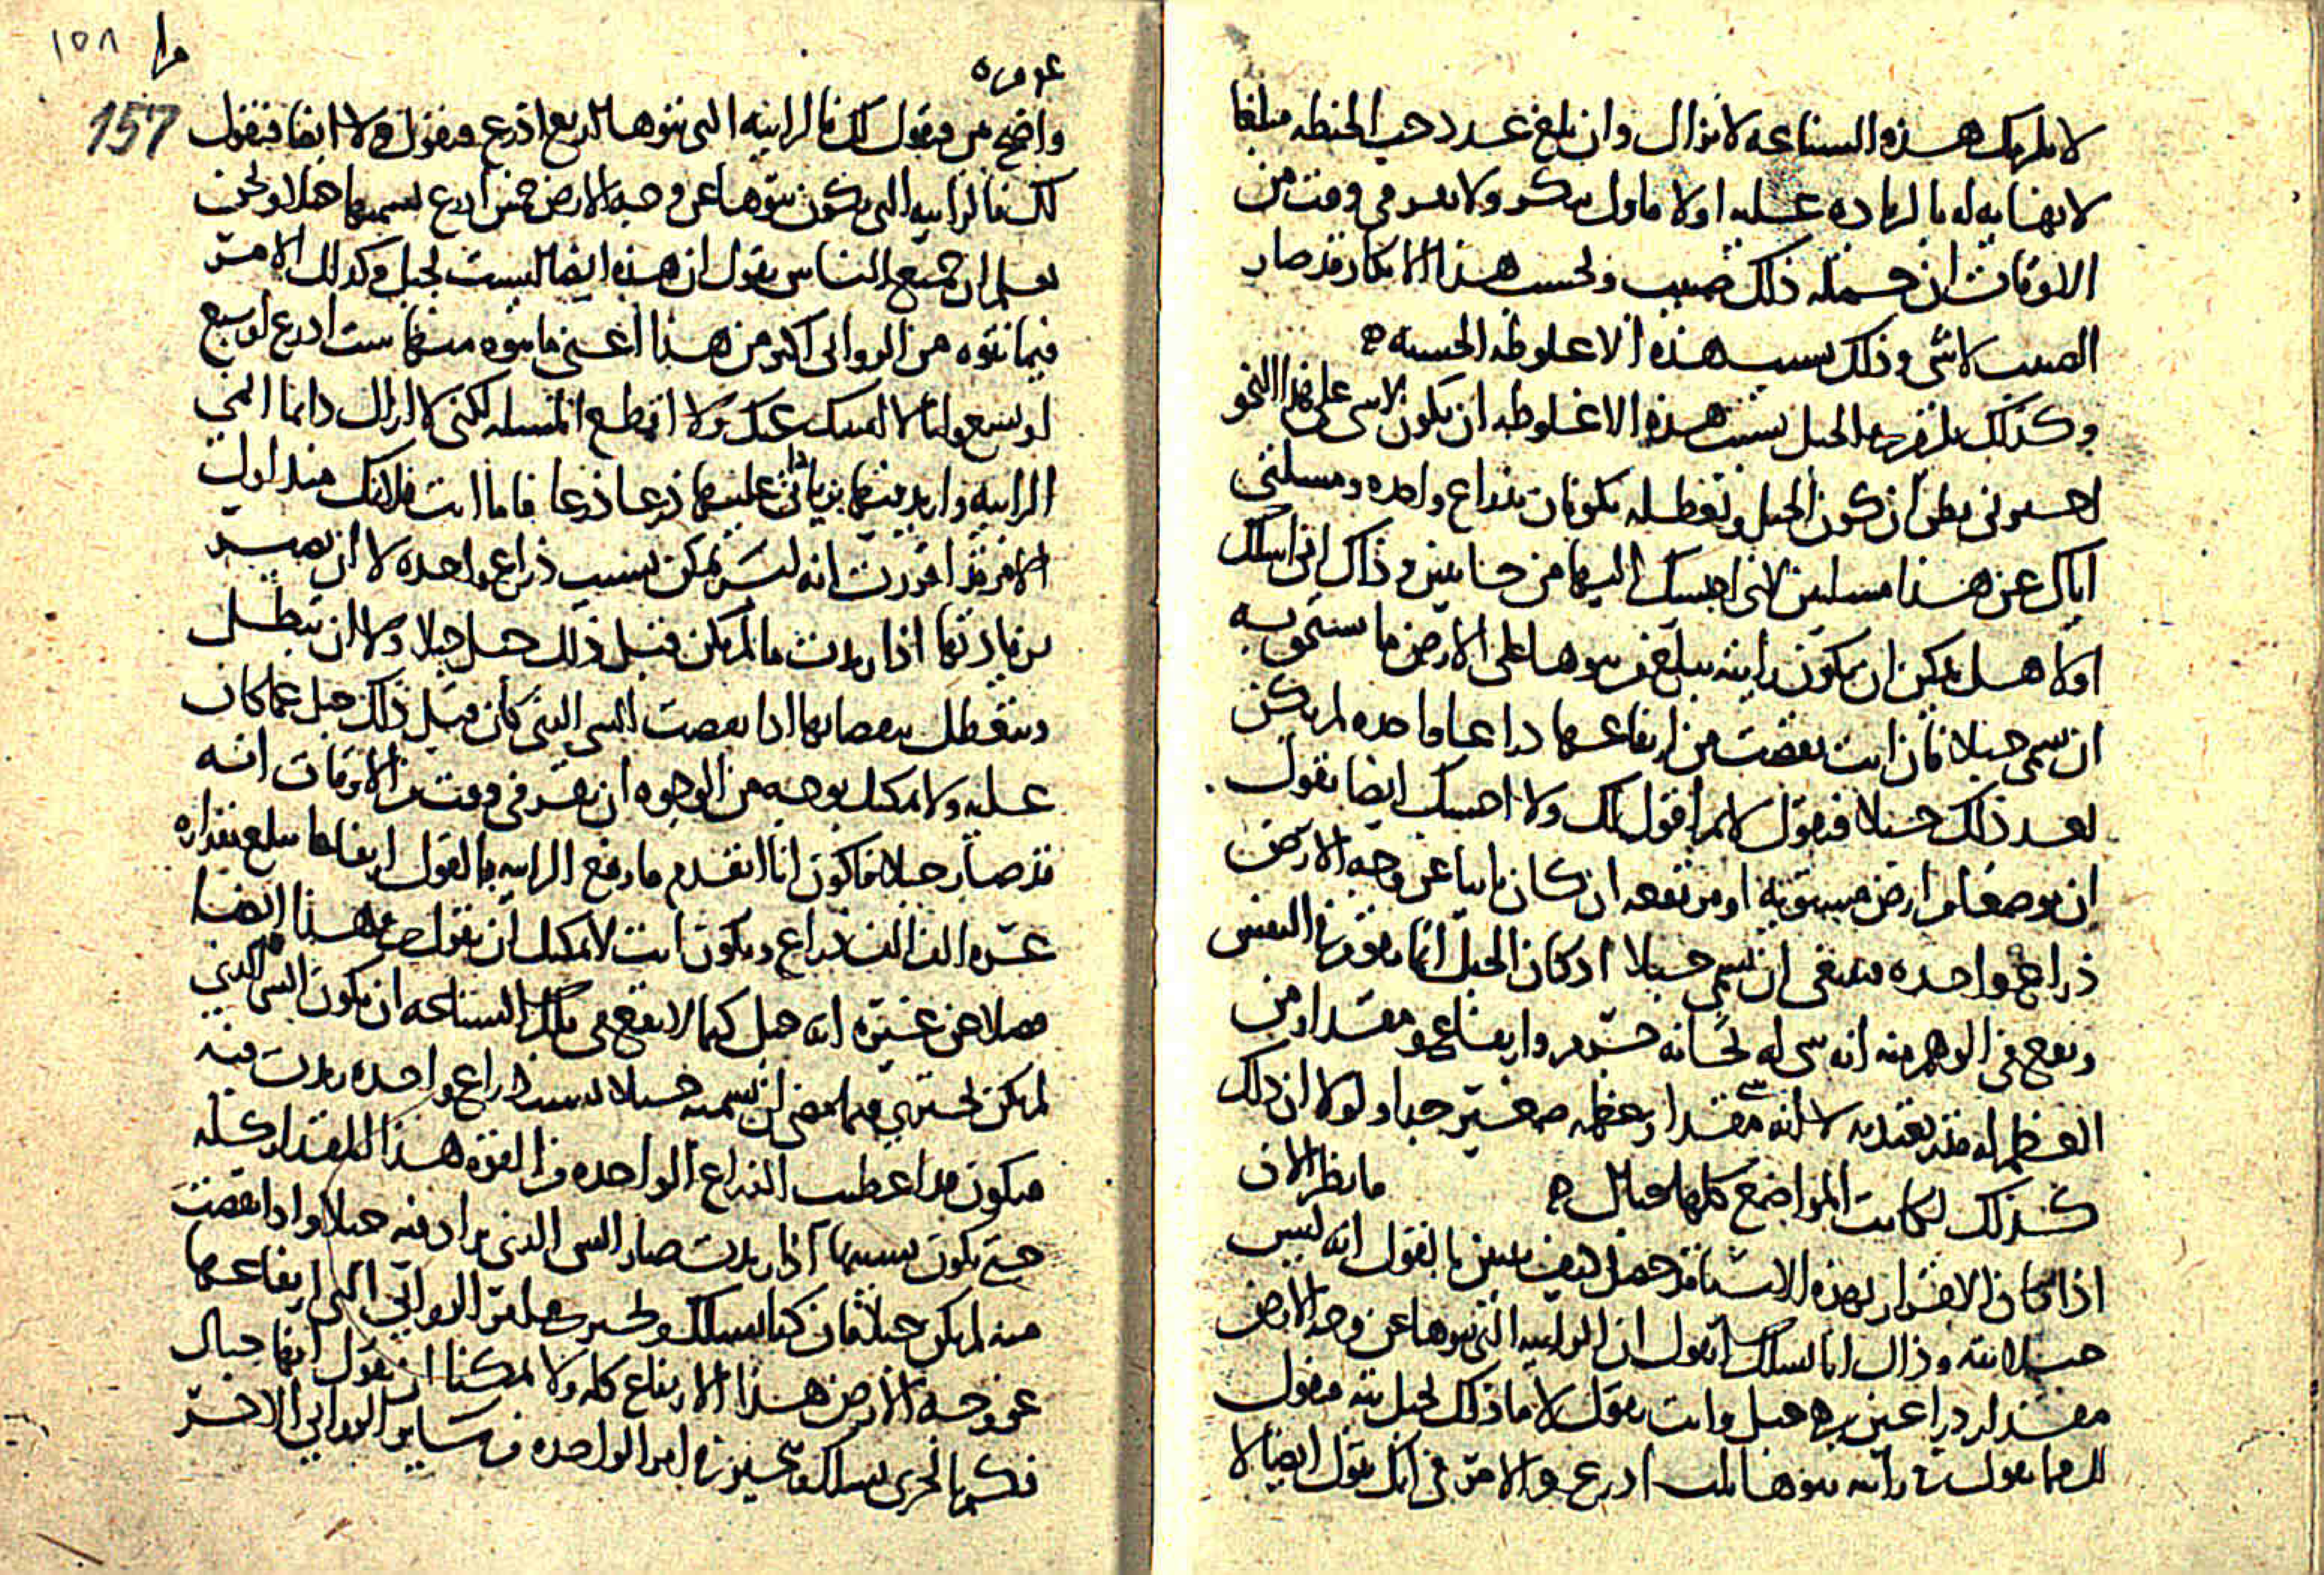 لا يلزمك هذه الشناعة لا تزال وان بلغ عدد حب الحنطه مبلغا
لا نهايه له بالزياده عليه اولا فاول ينكر ولا يعد في وقت من
الاوقات ان جمله ذلك صبيب وبحسب هذا الانكار قد صار
الصبيب لا شي وذلك بسبب هذه الاغلوطه الخسيسه
وكذلك يلزم في الجبل بسبب هذه الاغلوطه ان يكون لا شي على هذا النحو
اخبروني يظن ان كون الجبل وتعطله يكونان بذراع واحده ومسلتي
اياك عن هذا مسلتين لاني اجيبك اليهما من جانبين وذاك اني اسلك
اولا هل يمكن ان يكون رابيه يبلغ من نتوها على الارض ما يستحق به
ان تسمى جبلا فان انت نقصت من ارتفاعها ذراعا واحده لم يكن
بعد ذلك جبلا فتقول لا ثم اقول لك ولا احسبك ايضا تقول
ان موضعا من ارض مستويه او مرتفعه ان كان ناتيا عن وجه الارض
ذراع واحده فينبغي ان يسمى جبلا اذ كان الجبل انما يتصور في النفس
ويقع في الوهم منه انه شي له ثخانه جرم وارتفاع ومقدار من
العظم له قدر يعتد به لا انه شي مقدار عظمه صغير جدا ولولا ان ذلك
كذلك لكانت المواضع كلها جبال فانظر الان
اذا كان الاقرار بهذه الاشيا قد حصل كيف يتبين بالقول انه ليس
جبل البته وذاك انا نسلك اتقول ان الرابيه التي نتوها عن وجه الارض
مقدار ذراعين هي جبل وانت تقول لا ما ذلك بجبل بته فنقول
لك فما تقول في رابيه نتوها ثلث اذرع والامر في انك تقول ايضا لا
عورض
١٥٨
157
واضح من فنقول لك فالرابيه التي نتوها اربع اذرع فتقول لا ايضا فنقول
لك فالرابيه التي يكون نتوها عن وجه الارض خمس اذرع نسميها جبلا ونحن
نعلم ان جميع الناس يقول ان هذه ايضا ليست بجبل وكذلك الامر
فيما نتوه من الروابي اكثر من هذا اعني ما نتوه منها ست اذرع او سبع
او تسع وانا لا امسك عنك ولا اقطع المسله لكني لا ازال دائما
الرابيه وازيد فيها بزيادتي عليها ذرعا ذرعا فاما انت فلانك منذ اول
الامر قد اقررت انه ليس يمكن بسبب ذراع واحده لا ان يصير
بزيادتها اذا زيدت ما لم يكن قبل ذلك جبل جبلا ولا ان يبطل
ويتعطل بنقصانها اذا نقصت الشي الذي كان قبل ذلك جبل عما كان
عليه ولا يمكنك بوجه من الوجوه ان تقر في وقت من الاوقات انه
قد صار جبلا فاكون انا اتقدم فارفع الرابيه بالقول ارتفاعا يبلغ مقداره
عشره الف الف ذراع وتكون انت لا يمكنك ان تقول في هذا ايضا
فضلا عن غيره انه جبل كيما لا تقع في تلك الشناعه ان يكون الشي الذي
لم يكن تجتري فيما مضى ان تسميه جبلا بسبب ذراع واحده زيدت فيه
فيكون قد اعطيت الذراع الواحده من القوه هذا المقدار كله
حتى يكون بسببها اذا زيدت صار الشي الذي يزاد فيه جبلا واذا نقصت
منه لم يكن جبلا فان كنا نسلك ونخبرك عن الروابي التي ارتفاعها
عن وجه الارض هذا الارتفاع كله ولا يمكننا ان نقول انها جبال
فكم بالحري نسلك ونخبر في امر الواحده من ساير الروابي الاخر